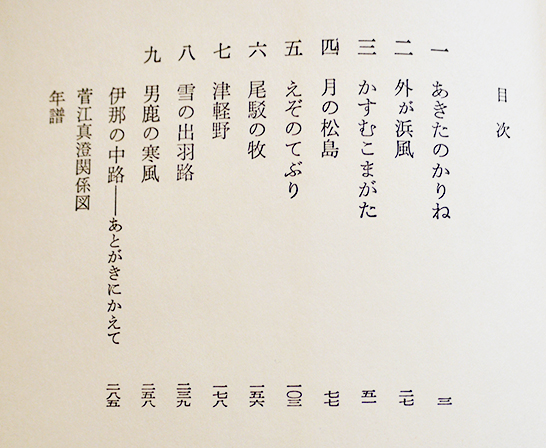 目次
一 あきたのかりね 三
二 外が浜風 二七
三 かすむこまがた 五一
四 月の松島 七七
五 えぞのてぶり 一〇三
六 尾駁の牧 一五六
七 津軽野 一七八
八 雪の出羽路 二三九
九 男鹿の寒風 二五八
伊那の中路――あとがきにかえて 二八五
菅江真澄関係図
年譜